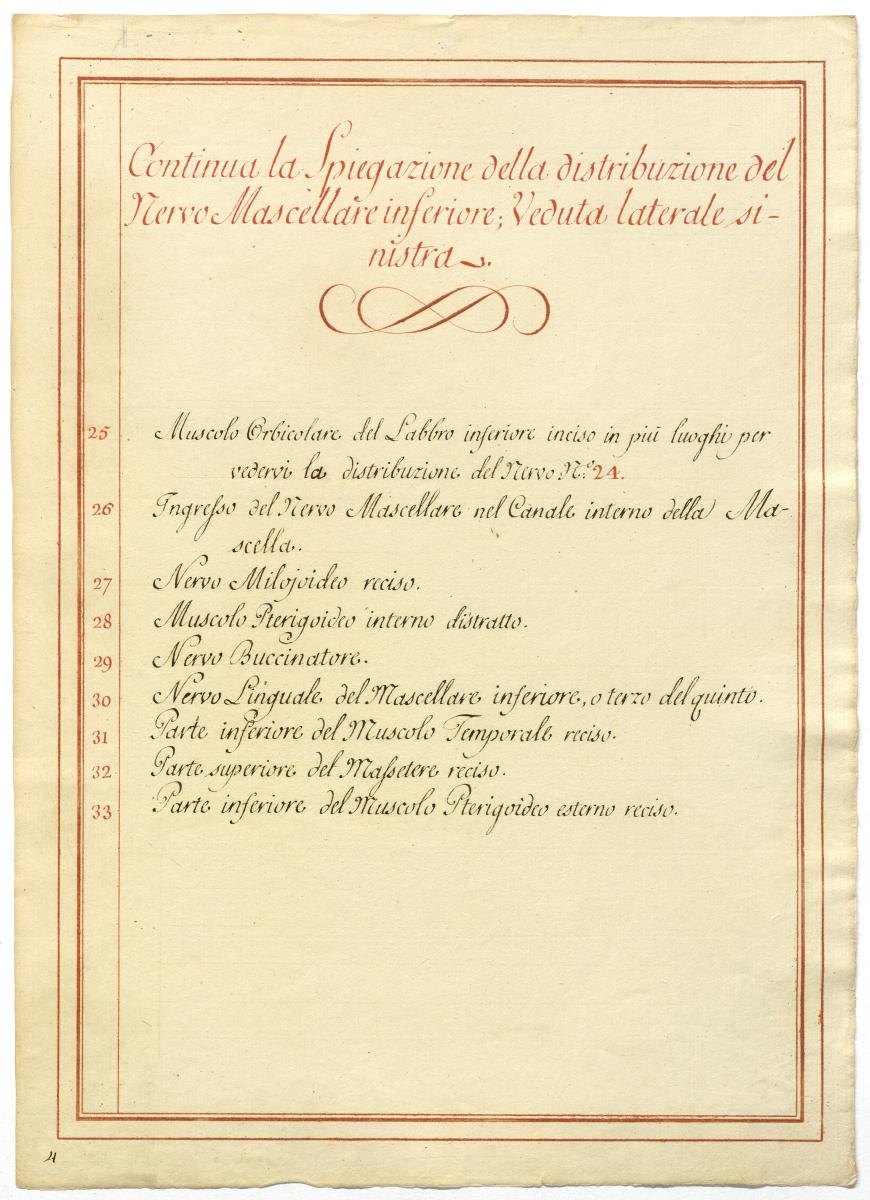 Continua la Spiegazione della distribuzione del
Nervo Mascellare inferiore; Veduta laterale si-
nistra.
25 Muscolo Orbicolare del Labbro inferiore inciso in più luoghi per
vedervi la distribuzione del Nervo N.º 24.
26 Ingresso del Nervo Mascellare nel Canale interno della Ma-
scella.
27 Nervo Milojoideo reciso.
28 Muscolo Pterigoideo interno distratto.
29 Nervo Buccinatore.
30 Nervo Linguale del Mascellare inferiore, o terzo del quinto.
31 Parte inferiore del Muscolo Temporale reciso.
32 Parte superiore del Massetere reciso.
33 Parte inferiore del Muscolo Pterigoideo esterno reciso.
4